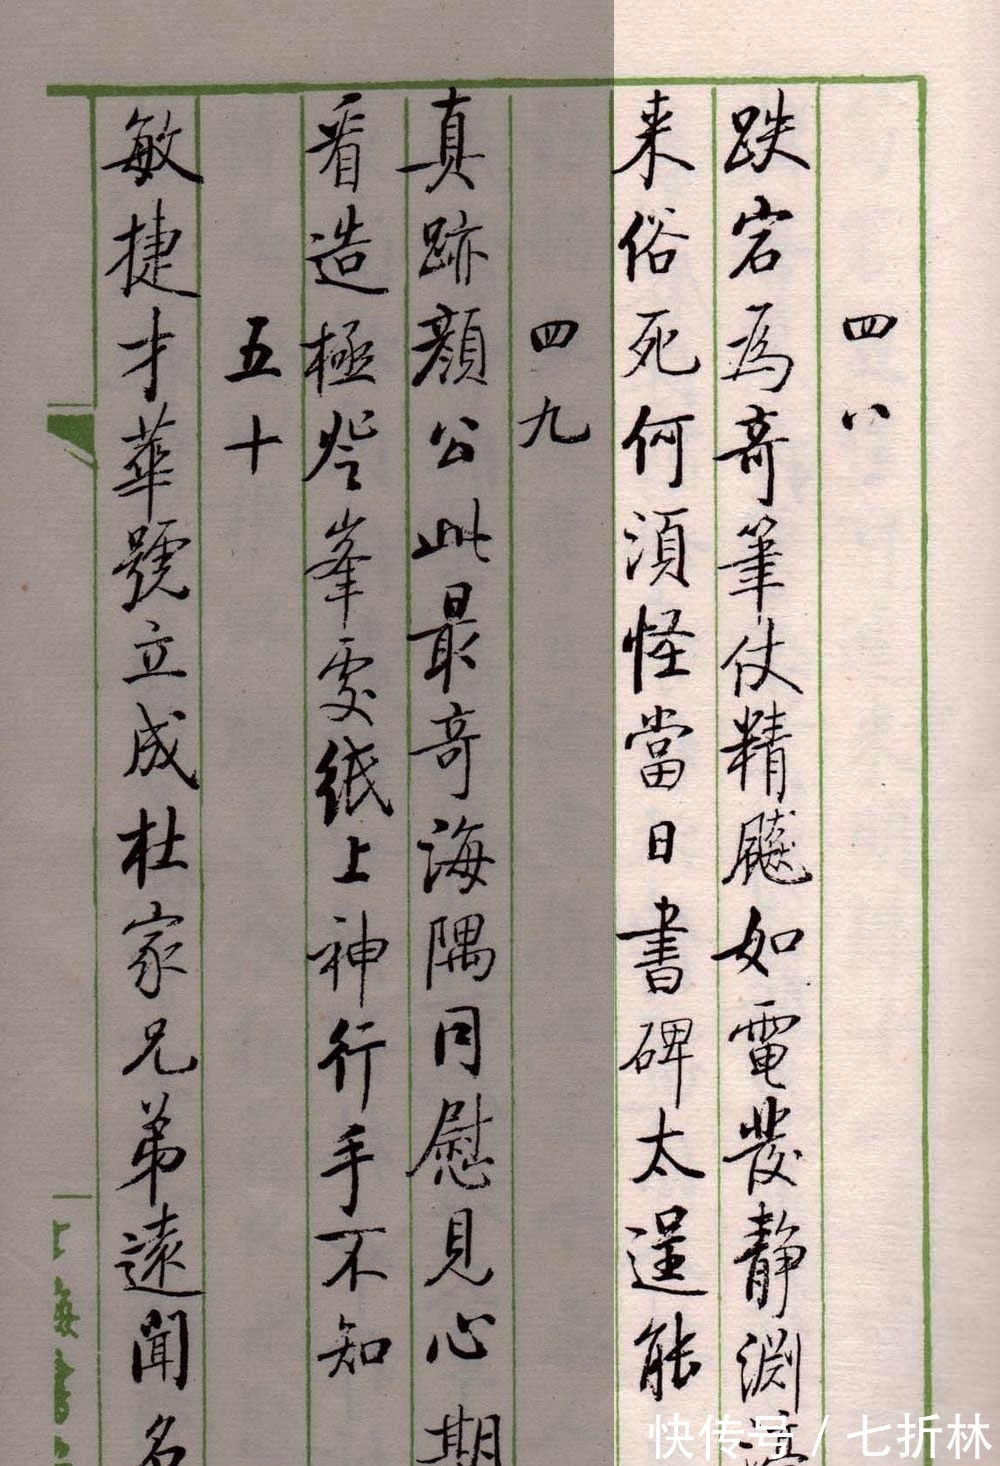 四八
跌宕為奇筆仗精飈如電發靜淵
来俗死何須怪當日書碑太逞能
四九
真跡顏公此最奇海隅同慰見心期
看造極登峯處紙上神行手不知
五十
敏捷才華號立成杜家兄弟遠聞名
上海書
快传号/七折林